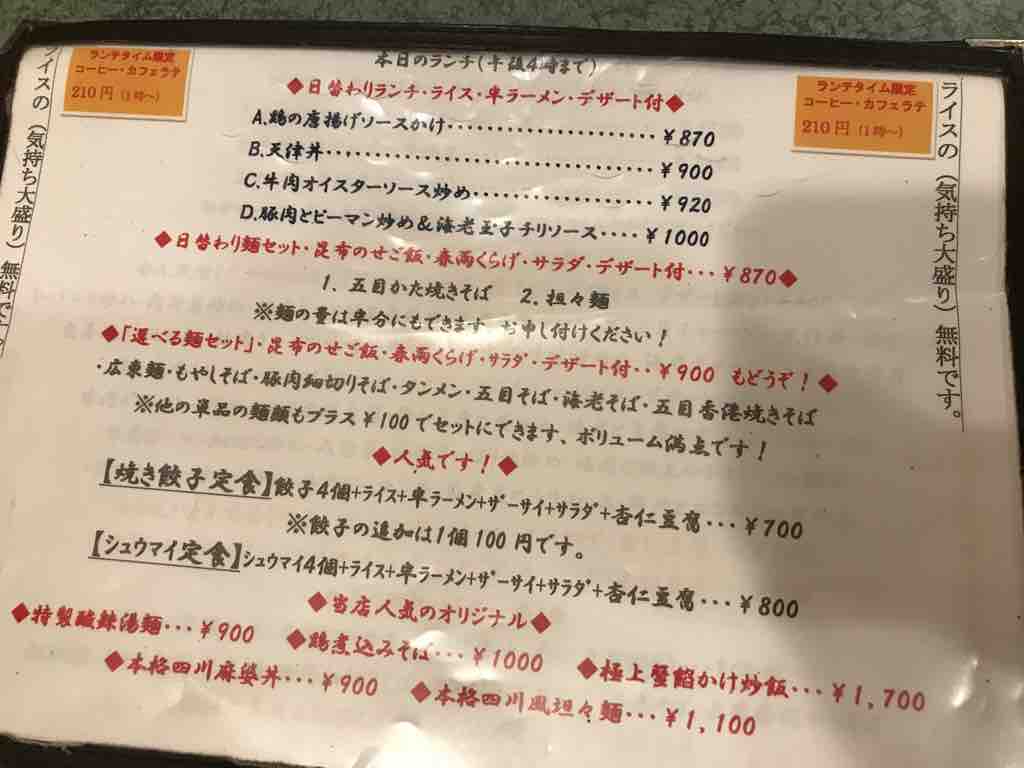 本日のランチ(午後4時まで)
ランチタイム限定
コーヒー・カフェラテ
210円(1時〜)
ランチタイム限定
コーヒー・カフェラテ
210円(1時〜)
◆日替わりランチ・ライス・半ラーメン・デザート付◆
A.鶏の唐揚げソースかけ・・・・・・・・・・・・・・・・・・・・¥870
B.天津丼・・・・・・・・・・・・・・・・・・・・・・・・・・・・・・¥900
C.牛肉オイスターソース炒め・・・・・・・・・・・・・・・・¥920
D.豚肉とピーマン炒め&海老玉子チリソース・・・・¥1000
◆日替わり麺セット・昆布のせご飯・春雨くらげ・サラダ・デザート付・・・¥870◆
1. 五目かた焼きそば 2. 担々麺
※麺の量は半分にもできます。お申し付けください!
◆「選べる麺セット」・昆布のせご飯・春雨くらげ・サラダ・デザート付・・¥900 もどうぞ!◆
・広東麺・もやしそば・豚肉細切りそば・タンメン・五目そば・海老そば・五目香港焼きそば
※他の単品の麺類もプラス¥100でセットにできます、ボリューム満点です!
◆人気です!◆
【焼き餃子定食】餃子4個+ライス+半ラーメン+ザーサイ+サラダ+杏仁豆腐・・・¥700
※餃子の追加は1個100円です。
【シュウマイ定食】シュウマイ4個+ライス+半ラーメン+ザーサイ+サラダ+杏仁豆腐・・・¥800
◆当店人気のオリジナル◆
◆特製酸辣湯麺・・・¥900 ◆鶏煮込みそば・・・¥1000 ◆極上蟹餡かけ炒飯・・・¥1,700
◆本格四川麻婆丼・・・¥900 ◆本格四川風坦々麺・・・¥1,100
ライスの(気持ち大盛り)無料で
ライスの(気持ち大盛り)無料です。